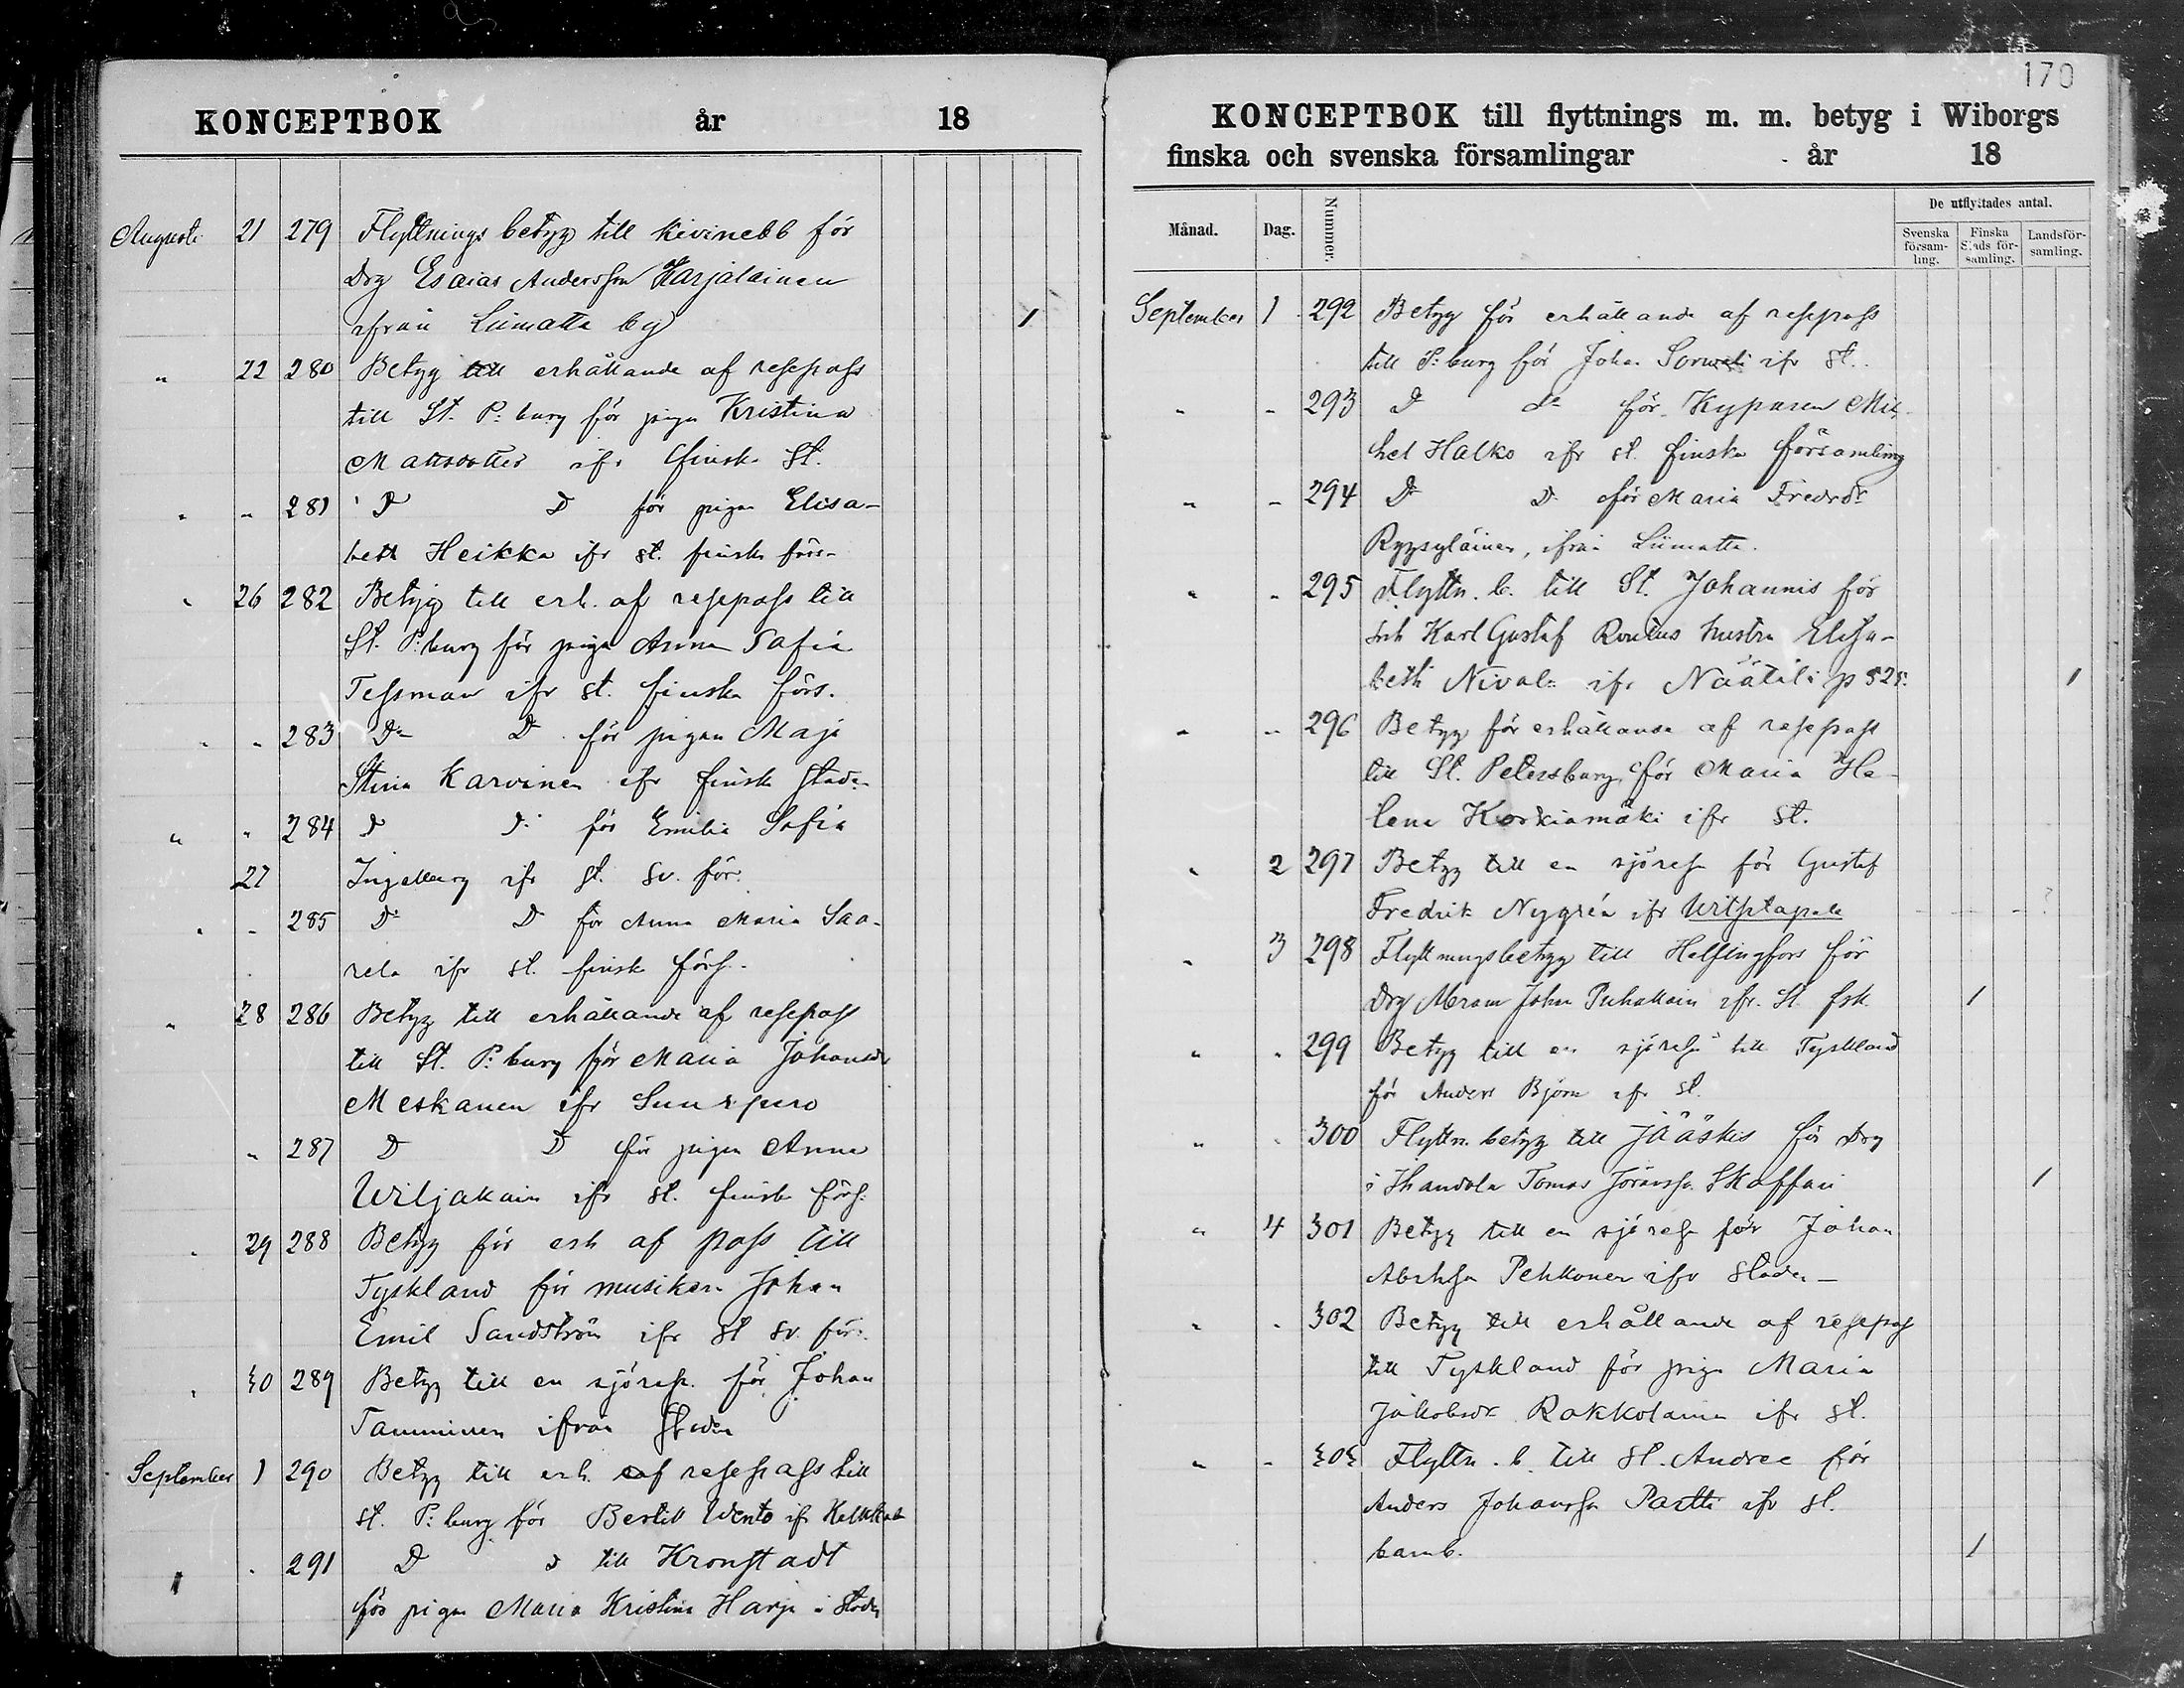 KONCEPTBOK år 18
Augusti 21 279 Flyttnings betyg till Kivinebb för
Drg Esaias Andersson Karjalainen
ifrån Liimatta by 1
" 22 280 Betyg till erhållande af resepass
till St. P:burg för pigan Kristina
Mattsdotter ifr finska St.
" " 281 D D för pigan Elisa-
beth Heikka ifr st. finska förs-
" 26 282 Betyg till erh. af resepass till
St. P:burg för piga Anna Sofia
Tessman ifr st. finska förs.
" " 283 Do D för pigan Maja
Stina Karvinen ifr finska staden
" " 284 D D: för Emilia Sofia
27 Ingelberg ifr st. sv. för.
" " 285 Do D för Anna Maria Saa-
rela ifr st. finska förs.
" 28 286 Betyg till erhållande af resepass
till St. P:burg för Maria Johansdr
Meskanen ifr Suurpero
" 287 D D för pigan Anna
Wiljakain ifr st. finska förs.
" 29 288 Betyg för erh af pass till
Tyskland för musikern Johan
Emil Sandström ifr st sv. för.
" 30 289 Betyg till en sjöresa för Johan
Tamminen ifrån staden
September 1 290 Betyg till erh. af resepass till
st. P:burg för Bertill Wento ifr
" " 291 D d till Kronstadt
för pigan Maria Kristina Harja i staden
170
KONCEPTBOK till flyttnings m. m. betyg i Wiborgs
finska och svenska församlingar år 18
Månad. Dag. Nummer. De utflyttades antal.
Svenska församling. Finska Stads församling. Landsförsamling.
September 1 292 Betyg för erhållande af resepass
till P:burg för Johan ifr st.
" " 293 D do för Kyparen Mic-
hel Halko ifr st. finska församling
" " 294 D D. för Maria Fredrdr
Ryysyläinen, ifrån Liimatta.
" " 295 Flyttn. b. till St. Johannis för
Karl Gustaf Rontus hustru Elisa-
beth Nivala ifr Näätälä p 525. 1
" " 296 Betyg för erhållande af resepass
till St. Petersburg för Maria He-
lena Korkiamäki ifr st.
" 2 297 Betyg till en sjöresa för Gustaf
Fredrik Nygrén ifr Uritstapale ?
" 3 298 Flyttningsbetyg till Helsingfors för
Drg Abram Johan Puhakain ifr. st fsk 1
" " 299 Betyg till en sjöresa till Tyskland
för Anders Björn ifr st.
" " 300 Flyttn. betyg till Jääskis för Drg
i Ihandola Tomas Jöransson Skaffari 1
" 4 301 Betyg till en sjöresa för Johan
Abrhsn Pehkonen ifr staden -
" " 302 Betyg till erhållande af resepass
till Tyskland för piga Maria
Jakobsdr Rakkolainen ifr st.
" " 303 Flyttn. b. till St. Andree för
Anders Johansson Partti ifr st.
barnb. 1